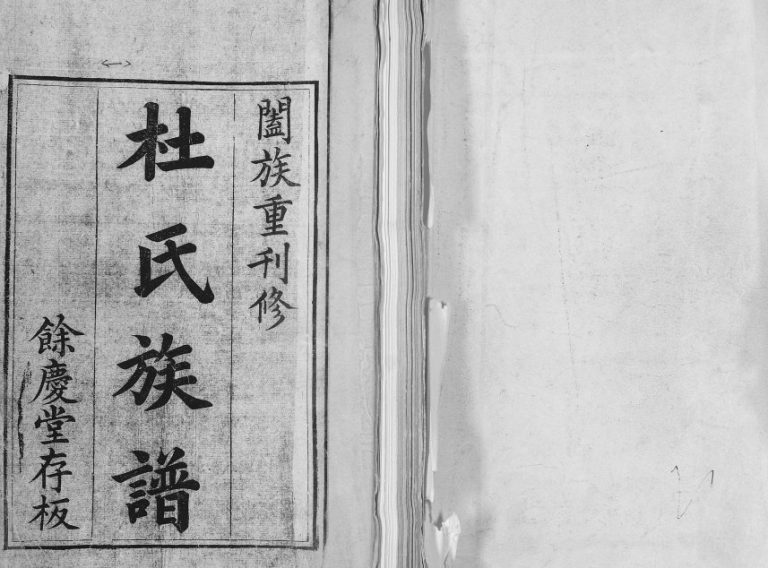 闔族重刊修
杜氏族譜
餘慶堂存板